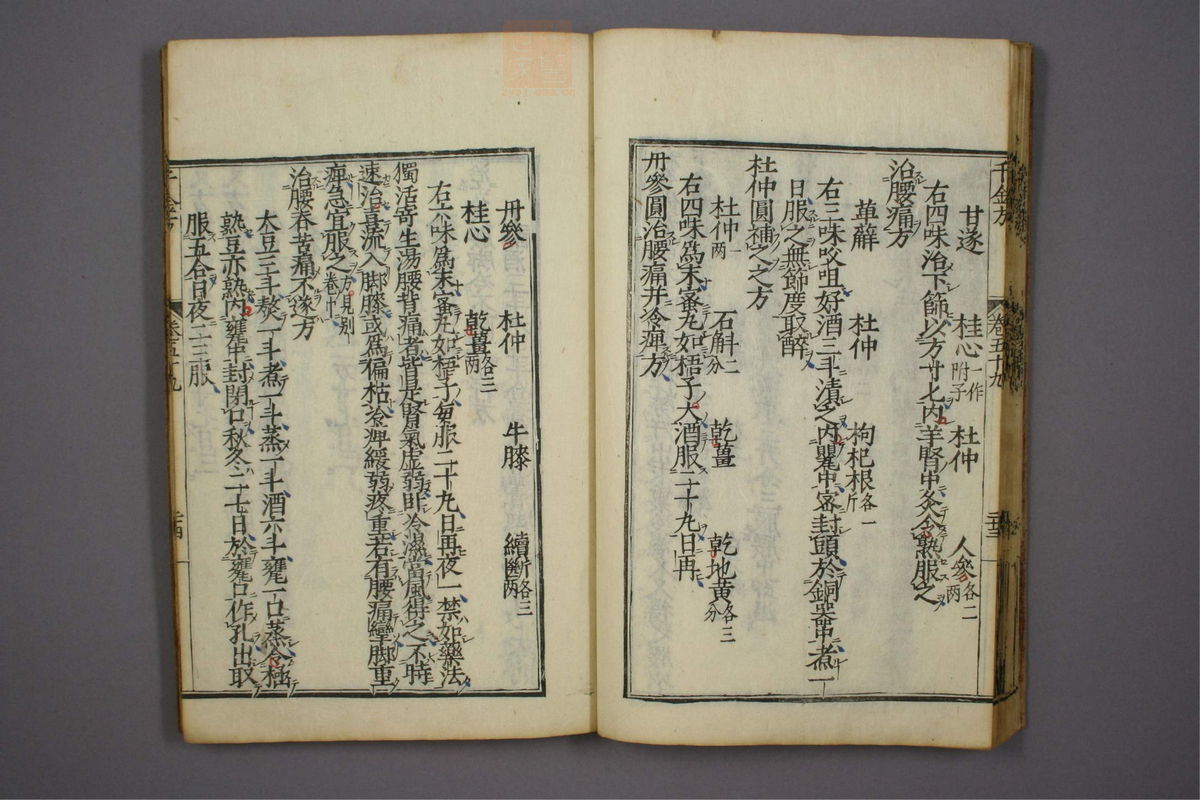 千金方
卷五十九
甘遂 桂心一作附子 杜仲 人參各二两
右四味治下篩以方寸匕内羊腎中灸令熟服之
治腰痛方
萆薢 杜仲 枸杞根各一斤
右三味㕮咀好酒三斗漬之内甖中密封頭於銅器中煮一
日服之無節度取醉
杜仲圓補之之方
杜仲一两 石斛二分 乾薑 乾地黄各三分
右四味爲末蜜丸如梧子大酒服二十丸日再
丹參圓治腰痛并冷痺方
丹參 杜仲 牛膝 續斷各三两
桂心 乾薑各三两
右六味爲末蜜丸如梧子每服二十丸日再夜一禁如藥法
獨活寄生湯腰背痛者皆是腎氣虚弱卧冷濕當風得之不時
速治喜流入脚膝或爲偏枯冷痺緩弱疼重若有腰痛攣脚重
痺急宜服之方見别卷中
治腰脊苦痛不遂方
大豆三斗熬一斗煮一斗蒸一斗酒六斗甕一口蒸令極
熱豆亦熱内甕中封閉口秋冬二七日於甕口作孔出取
服五合日夜二三服
千金方
卷五十九